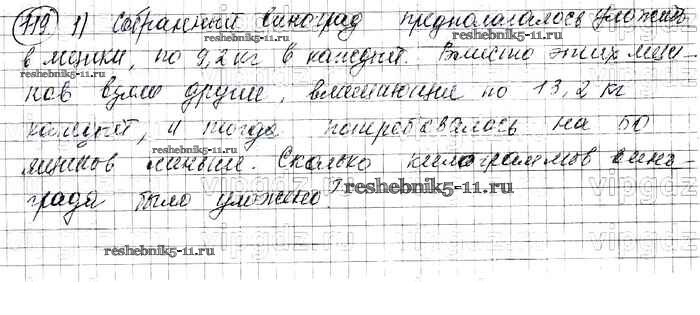 719 1) Собранный виноград предполагалось уложить
в ящики, по 9,2 кг в каждый. Вместо этих ящи-
ков взяли другие, вмещающие по 13,2 кг
каждый, и тогда потребовалось на 50
ящиков меньше. Сколько килограммов вино-
града было уложено?
reshebnik5-11.ru
reshebnik5-11.ru
reshebnik5-11.ru
reshebnik5-11.ru
vipgdz
vipgdz
vipgdz